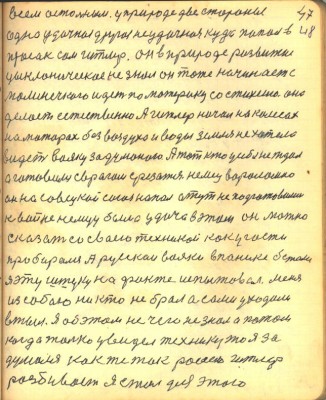 всем остолным. у природе две стораны 47
одна удачная другая неудачная кудa попал в 48
просак сам гитлер. он в природе развитие
цыклоническое не знал он тоже начинает с
малинечкого идет по матерыку со стихеми она
делает естественно А гитлер начал на колесах
на маторах без воздуха и воды земля не хотела
видеть вайну задуманою А тот кто
а готовилис врагам срезатся немец вораломно
он на советский союз напал А тут не подготовлины
к вайне немцу была удача в этом он можно
сказат со сваею техникой как у гости
пробирался А руские вайска в панике бежали
я эту штуку на факте испытовал. меня
из собаю никто не брал а сами уходили
в тыл. Я об этом не чего не знал а патом
когда толко увидел технику то я за
думался как же так россию гитлер
розбивает я стал для этого